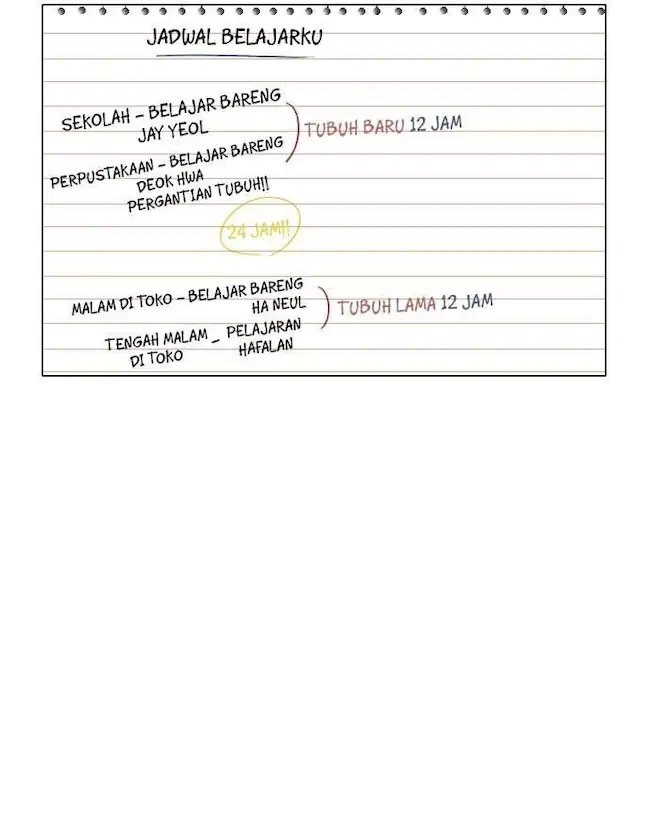 JADWAL BELAJARKU
SEKOLAH – BELAJAR BARENG
JAY YEOL
PERPUSTAKAAN – BELAJAR BARENG
DEOK HWA
PERGANTIAN TUBUH!!
TUBUH BARU 12 JAM
24 JAM!!
MALAM DI TOKO – BELAJAR BARENG
HA NEUL
TENGAH MALAM – PELAJARAN
DI TOKO HAFALAN
TUBUH LAMA 12 JAM